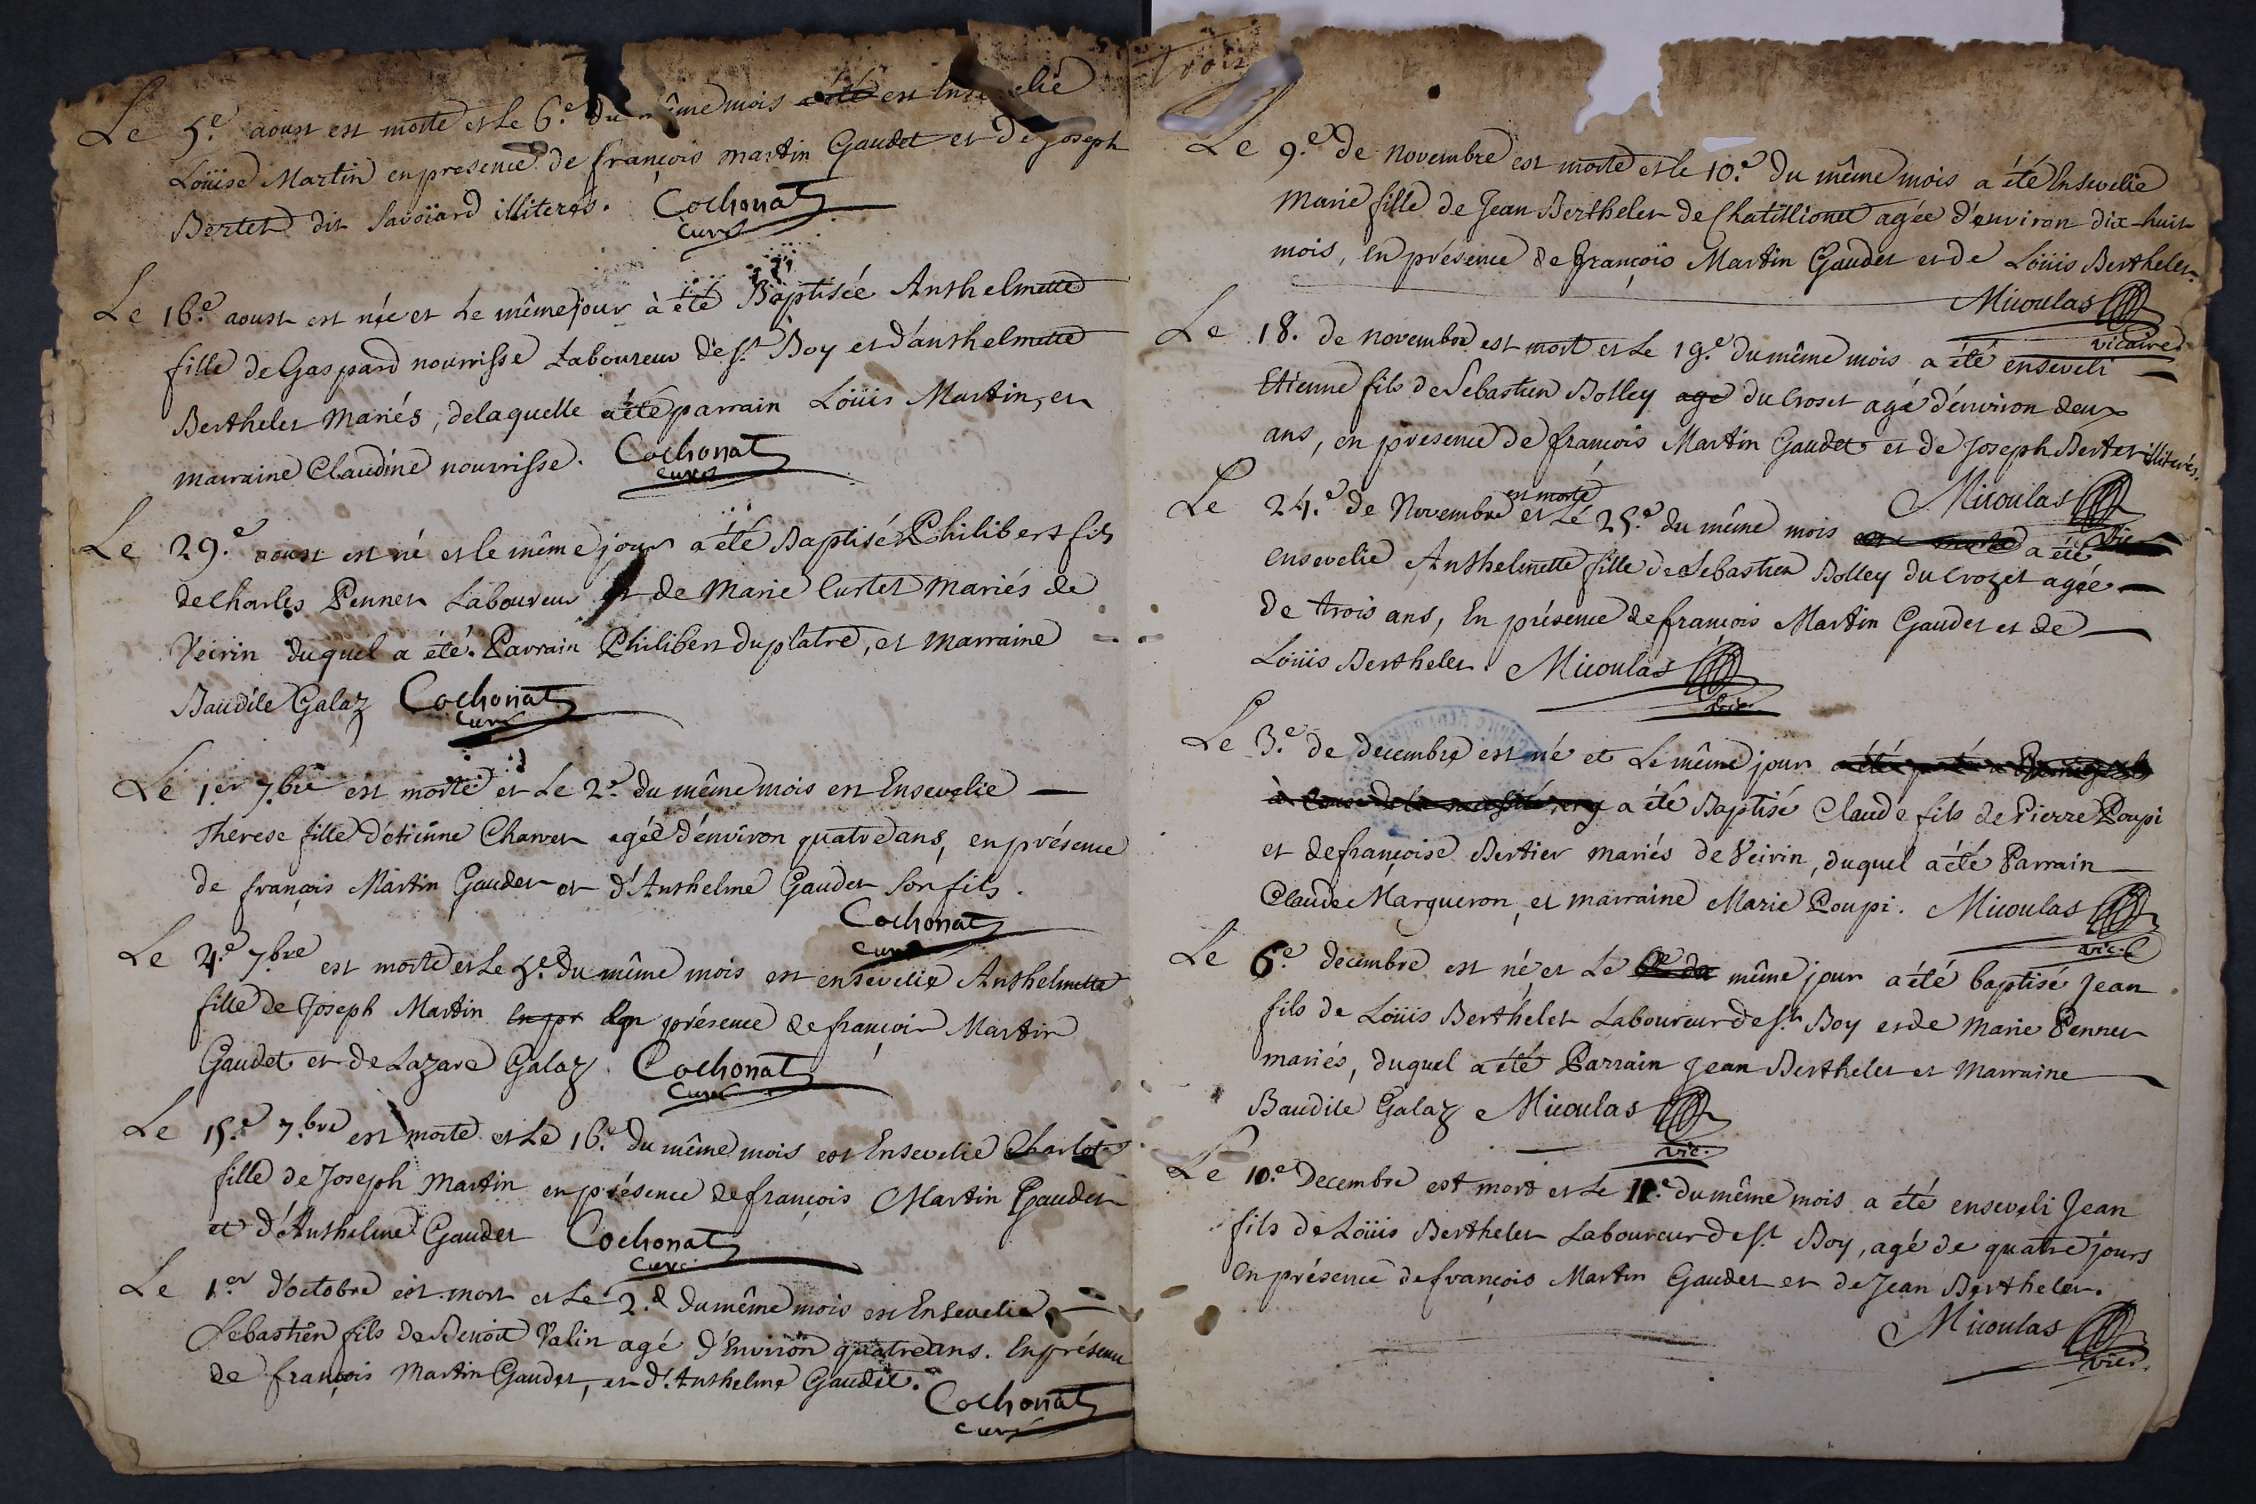 Le 5.e aoust est morte et Le 6.e du même mois a été est Ensevelie
Loüise Martin en presence de françois martin Gaudet et de joseph
Bertet dit Savoïard illiterés. Cochonat
curé
Le 16.e aoust est née et Le même jour à été Baptisée Anthelmette
fille de Gaspard nourrisse Laboureur de St Boy et d'anthelmette
Berthelet Mariés, delaquelle a été parrain Loüis Martin, et
marraine Claudine nourrisse. Cochonat
curé
Le 29.e aoust est né et le même jour a été Baptisé Philibert fils
de Charles Pennet Laboureur et de Marie Curtet mariés de
Veirin duquel a été Parrain Philibert duplatre, et marraine
Baudile Galaz Cochonat
curé
Le 1.er 7.bre est morte et Le 2.e du même mois est Ensevelie
Therese fille d'etienne Charvet agée d'environ quatre ans, en présence
de françois Martin Gaudet et d'Anthelme Gaudet son fils.
Cochonat
curé
Le 4.e 7.bre est morte et Le 5.e du même mois est ensevelie Anthelmette
fille de Joseph Martin en pr En présence de françois Martin
Gaudet et de Lazare Galaz. Cochonat
curé
Le 15.e 7.bre est morte et Le 16.e du même mois est Ensevelie Charlote
fille de Joseph Martin en présence de françois Martin Gaudet
et d'Anthelme Gaudet Cochonat
curé
Le 1.er d'octobre est mort et Le 2.d du même mois est Ensevelie
Sebastien fils de Benoit Valin agé d'Environ quatre ans. En présence
de françois Martin Gaudet, et d'Anthelme Gaudet.
Cochonat
curé
Trois
Le 9.e de Novembre est morte et le 10.e du même mois a été Ensevelie
Marie fille de Jean Berthelet de Chatillionet agée d'environ dix-huit
mois, en présence de françois Martin Gaudet et de Loüis Berthelet.
Micoulas
vicaire
Le 18. de novembre est mort et Le 19.e du même mois a été enseveli
Etienne fils de Sebastien Bolley agé du Croset agé d'environ deux
ans, en presence de françois Martin Gaudet et de Joseph Bertet illiterés.
Micoulas
vic
est morte
Le 24.e de Novembre et Le 25.e du même mois est morte a été
ensevelie Anthelmette fille de Sebastien Bolley du Crozet agée
de trois ans, En présence de françois Martin Gaudet et de
Loüis Berthelet. Micoulas
vic.
Le 3.e de decembre est né et Le même jour
à cause de la necessité a été Baptisé Claude fils de Pierre Poupi
et de françoise Bertier mariés de Veirin, duquel a été Parrain
Claude Marqueron, et marraine Marie Poupi. Micoulas
vic.
Le 6.e decembre est né, et Le même jour a été baptisé Jean
fils de Loüis Berthelet Laboureur de St Boy et de Marie Pennet
mariés, duquel a été Parrain Jean Berthelet et Marraine
Baudile Galaz Micoulas
vic.
Le 10.e Decembre est mort et Le 11.e du même mois a été enseveli Jean
fils de Loüis Berthelet Laboureur de St Boy, agé de quatre jours
En présence de françois Martin Gaudet et de Jean Berthelet.
Micoulas
vic.